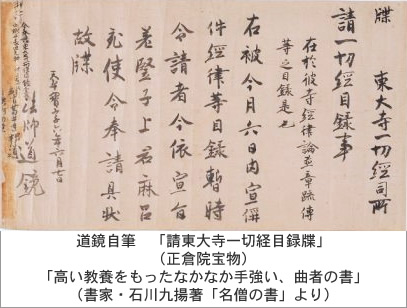 牒　東大寺一切經司所
請一切經目録事
在於彼寺經律論并章疏傳
等之目録是也
右被今月六日内宣偁
件經律等目録暫時
令請者今依宣旨
差竪子上君麻呂
充使令奉請具状
故牒
天平寶字六年六月七日
法師道鏡
道鏡自筆　「請東大寺一切経目録牒」
（正倉院宝物）
「高い教養をもったなかなか手強い、曲者の書」
（書家・石川九揚著「名僧の書」より）